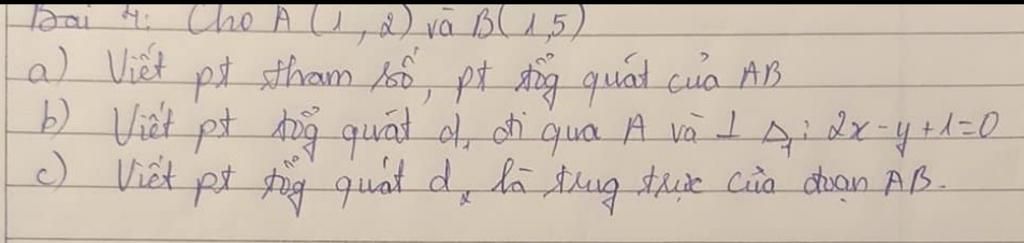 Bài 4: Cho A (1, 2) và B( 1,5)
a) Viết pt tham số, pt tổg quát của AB
b) Viết pt tổg quát d₁ đi qua A và ⊥ Δ₁: 2x - y + 1 = 0
c) Viết pt tổg quát d₂ là trug trực của đoạn AB.